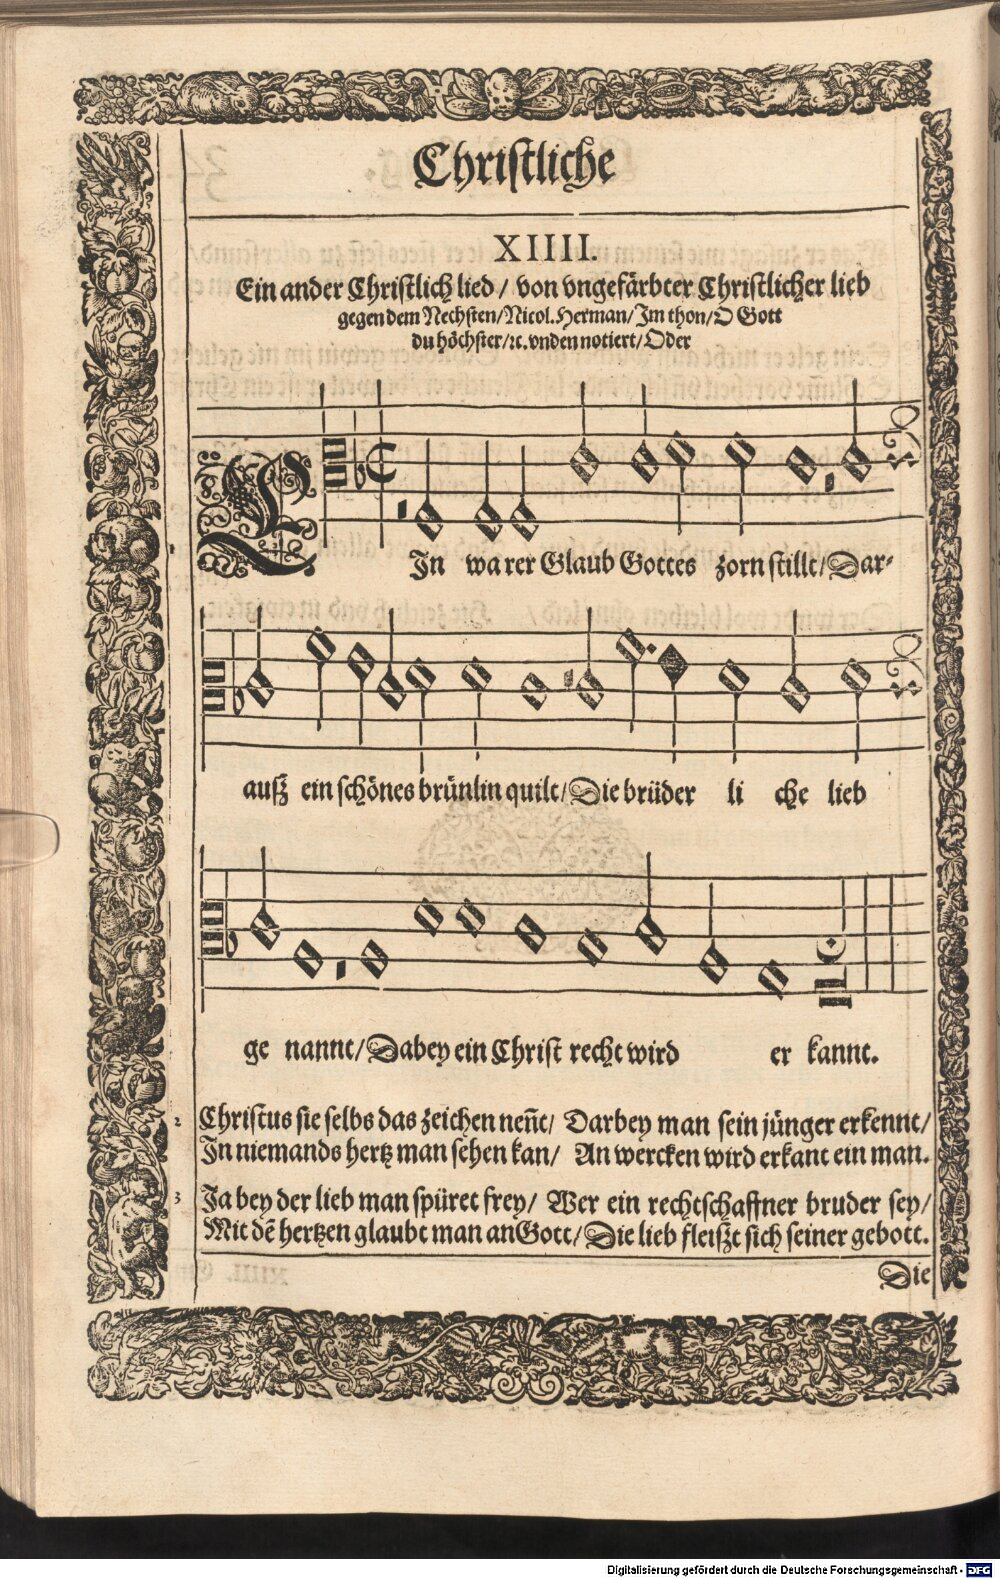 Christliche
XIIII.
Ein ander Christlich lied / von vngefärbter Christlicher lieb
gegen dem Nechsten / Nicol. Herman / Im thon / O Gott
du höchster / ꝛc. vnden notiert / Oder
EIn wa rer Glaub Gottes zorn stillt / Dar-
auß ein schönes brünlin quilt / Die brüder li che lieb
ge nannt / Dabey ein Christ recht wird er kannt.
2 Christus sie selbs das zeichen neñt / Darbey man sein jünger erkennt /
In niemands hertz man sehen kan / An wercken wird erkant ein man.
3 Ja bey der lieb man spüret frey / Wer ein rechtschaffner bruder sey /
Mit dẽ hertzen glaubt man an Gott / Die lieb fleißt sich seiner gebott.
Die
Digitalisierung gefördert durch die Deutsche Forschungsgemeinschaft - DFG